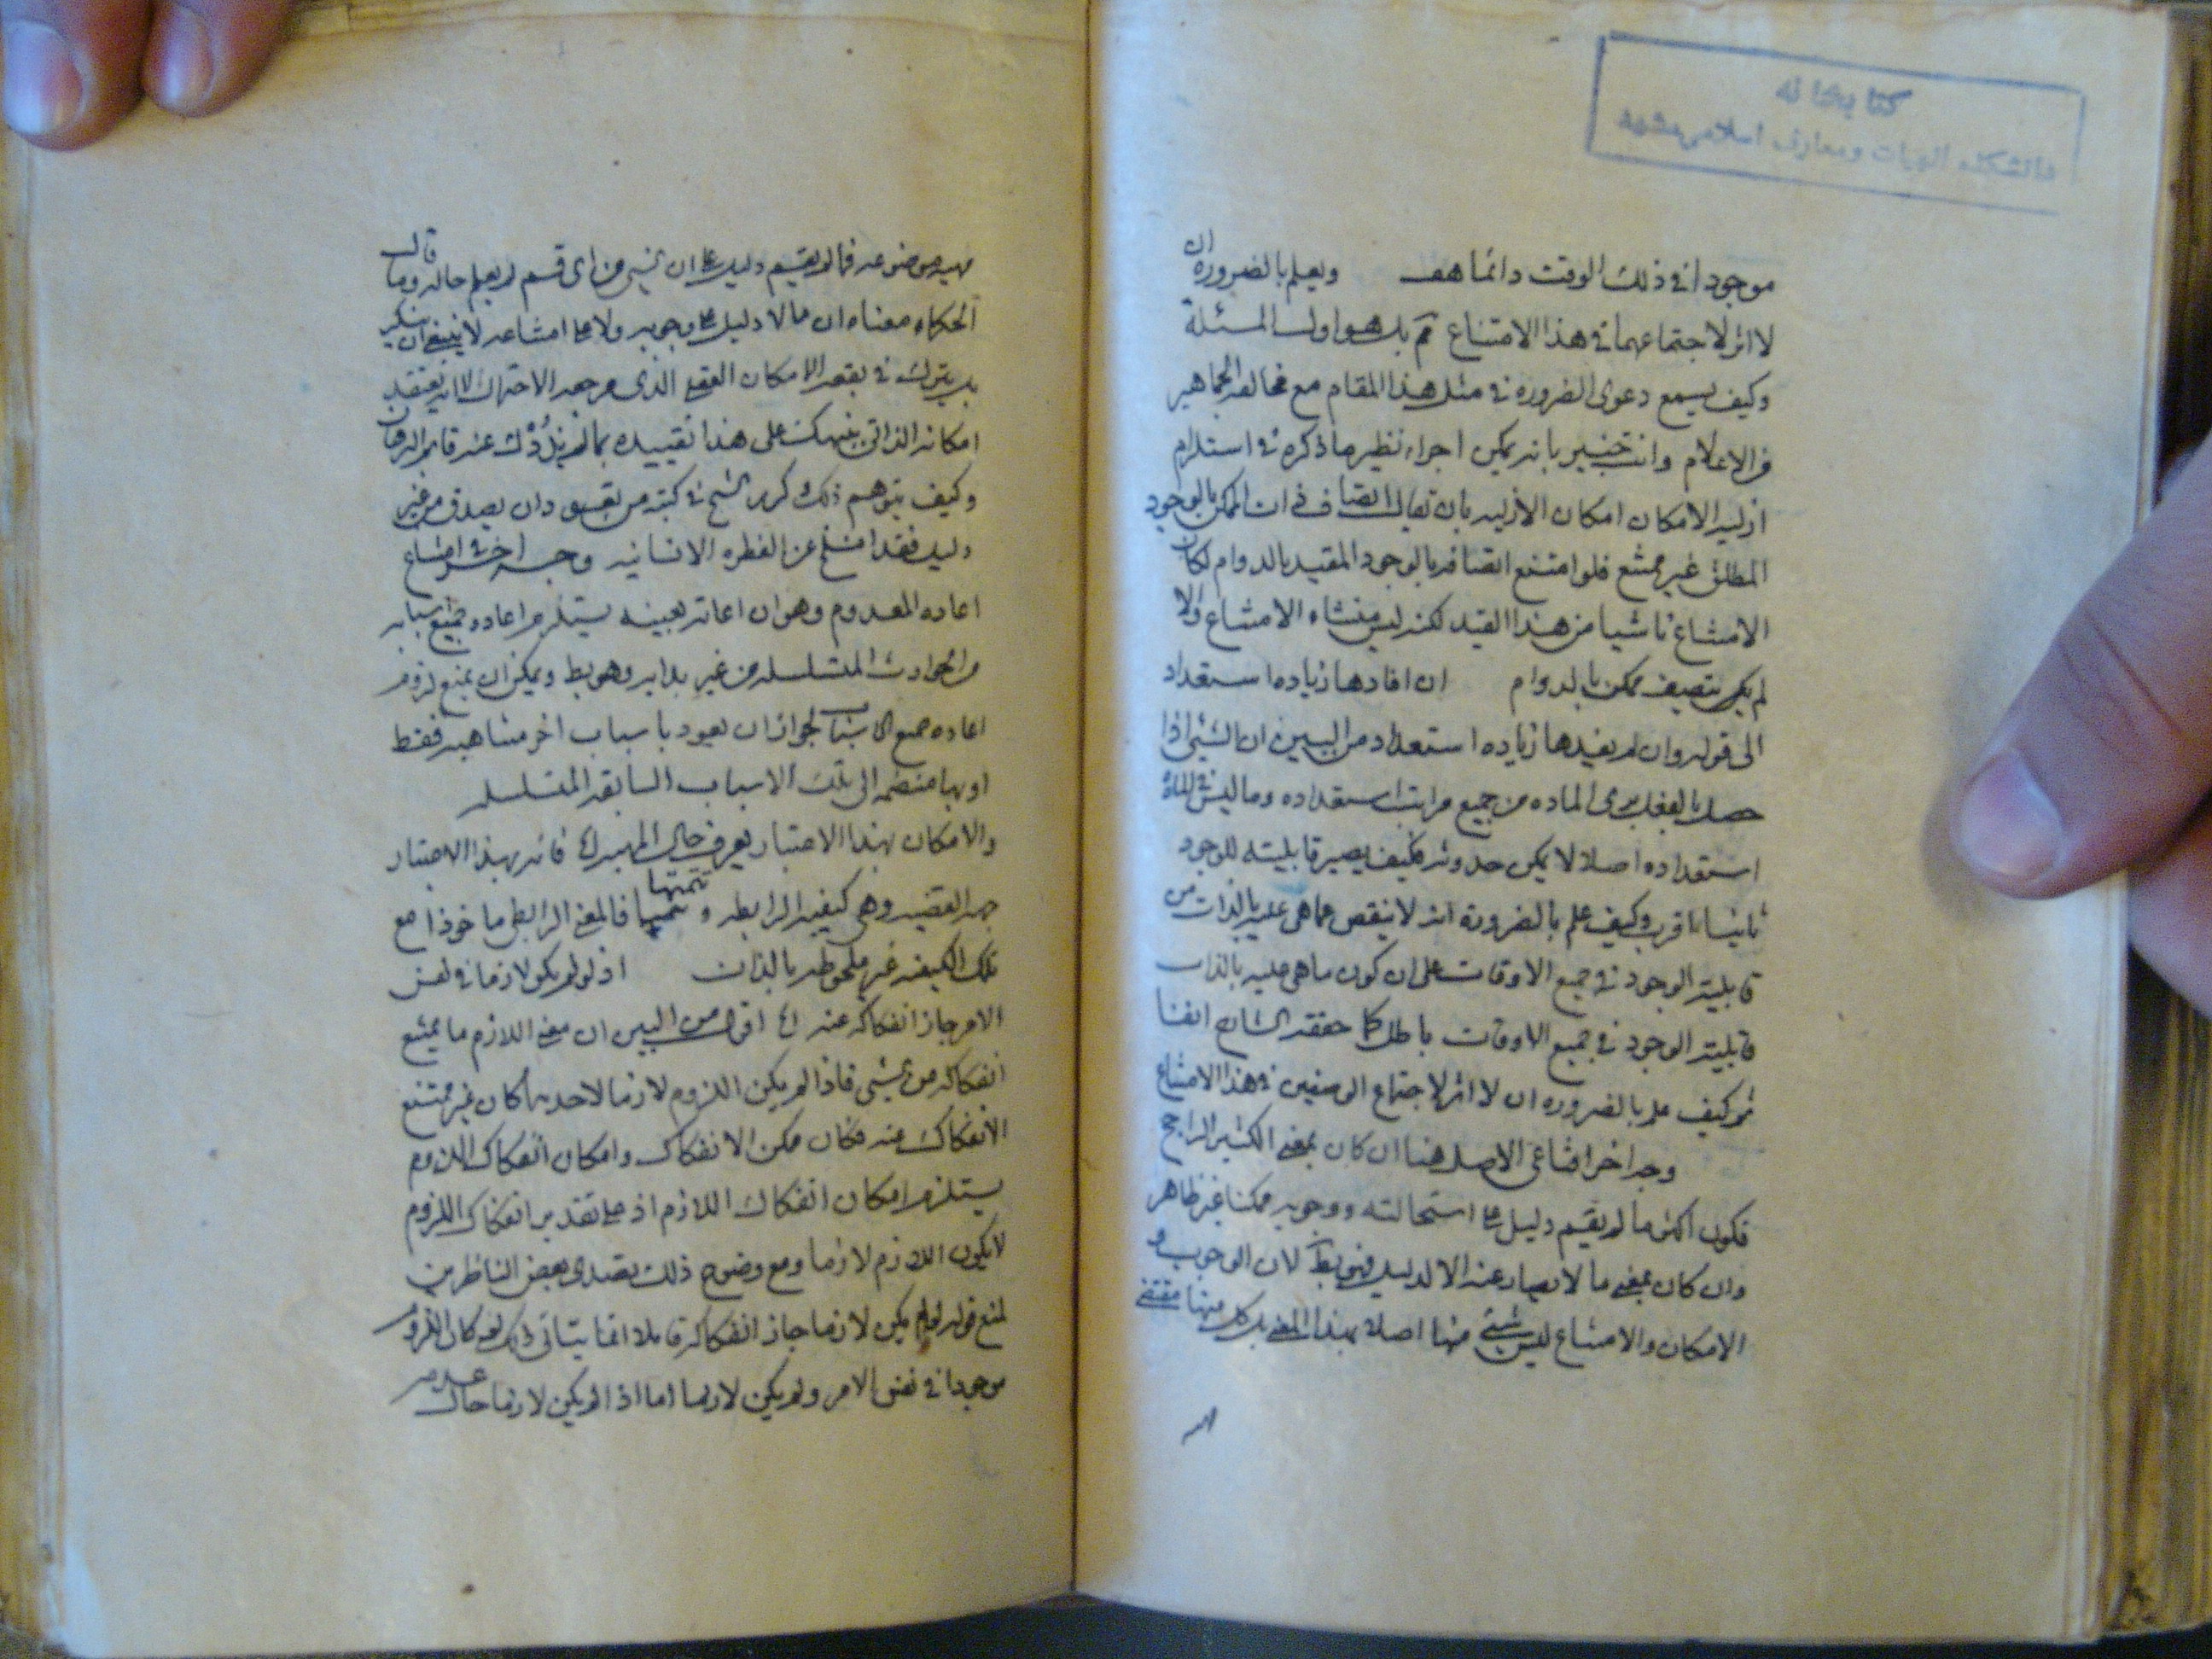 كتابخانه
دانشكده الهيات ومعارف اسلامى مشهد
موجودا فى ذلك الوقت دائما هف ويعلم بالضروره ان
لا اثر لاجتماعهما فى هذا الامتناع مم بل هو اول المسئلة
وكيف يسمع دعوى الضروره فى مثل هذا المقام مع مخالفه الجماهير
من الاعلام وانت خبير بانه يمكن اجراء نظير ما ذكره فى استلزام
ازليه الامكان امكان الازليه بان يقال اتصاف ذات الممكن بالوجود
المطلق غير ممتنع فلو امتنع اتصافه بالوجود المقيد بالدوام لكان
الامتناع ناشيا من هذا القيد لكنه ليس منشاء الامتناع والا
لم يكن يتصف ممكن بالدوام ان افادها زياده استعداد
الى قوله وان لم يفيدها زياده استعداد من البين ان الشئ اذا
حصل بالفعل يرى الماده من جميع مراتب استعداده وما ليس فى الماده
استعداده اصلا لا يمكن حدوثه فكيف يصير قابليته للوجود
ثانيا اقرب وكيف علم بالضرورة انه لا ينقص عما هى عليه بالذات من
قابلية الوجود فى جميع الاوقات على ان كون ما هى عليه بالذات
قابلية الوجود فى جميع الاوقات باطل كما حققه الشارح انفا
ثم كيف علم بالضروره ان لا اثر لاجتماع الوصفين فى هذا الامتناع
وجه اخر اقناعى الاصل هنا ان كان بمعنى الكثير الراجح
فكون اكثر ما لم يقيم دليل على استحالته ووجوبه ممكنا غير ظاهر
وان كان بمعنى ما لا يصار عنه الا لدليل فهو بط لان الوجوب و
الامكان والامتناع ليس شئ منها اصلا بهذا المعنى بل كل منها مقتضى
مهيه
مهيه موضوعه فما لم يقيم دليل على ان الشى من اى قسم لم يعلم حاله وما قال
الحكماء معناه ان ما لا دليل على وجوبه ولا على امتناعه لا ينبغى ان ينكر
بل يترك فى بقعه الامكان العقلى الذى مرجعه الاحتمال لا انه يعتقد
امكانه الذاتى ينبهك على هذا تقييده بما لم يذدك عنه قايم البرهان
وكيف يتوهم ذلك وكرر الشيخ فى كتبه من تعود ان يصدق من غير
دليل فقد انسلخ عن الفطره الانسانيه وجه اخر فى امتناع
اعاده المعدوم وهو ان اعادته بعينه يستلزم اعاده جميع اسبابه
من الحوادث المتسلسله من غير بدايه وهو بط ويمكن ان يمنع لزوم
اعاده جميع الاسباب لجواز ان يعود باسباب اخر متناهيه فقط
او بها منضمه الى تلك الاسباب السابقه المتسلسله
والامكان بهذا الاعتبار يعرف حال المهيه الخ فانه بهذا الاعتبار
جهه القضيه وهى كيفيه الرابطه و تتمتها فالمعنى الرابطى ماخوذا مع
تلك الكيفيه غير ملحوظه بالذات اذ لو لم يكن لازما فى نفس
الامر جاز انفكاكه عنه الخ اقول من البين ان معنى اللازم ما يمتنع
انفكاكه من الشى فاذا لم يكن اللزوم لازما لاحدهما كان غير ممتنع
الانفكاك عنه فكان ممكن الانفكاك وامكان انفكاك اللزوم
يستلزم امكان انفكاك اللازم اذ على تقدير انفكاك اللزوم
لا يكون اللازم لازما ومع وضوح ذلك تصدى بعض الناظرين
لمنع قوله لو لم يكن لازما جاز انفكاكه قايلا انما يتاتى ذلك لو كان اللزوم
موجودا فى نفس الامر ولم يكن لازما اما اذا لم يكن لازما حال عدمه